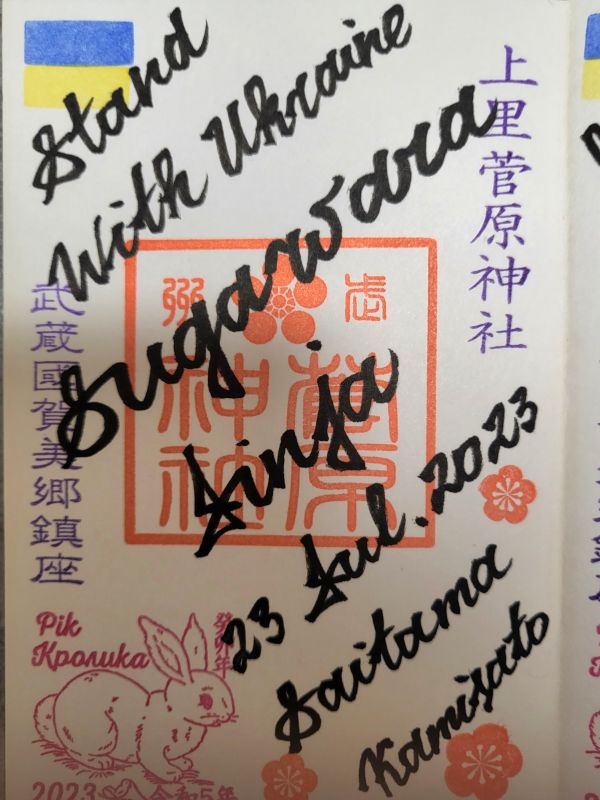 Stand
With Ukraine
Sugawara
Jinja
23 Jul. 2023
Saitama
Kamisato
上里菅原神社
菅原
神社
武蔵國賀美郷鎮座
Рік
Кролика
癸卯年
2023 令和5年